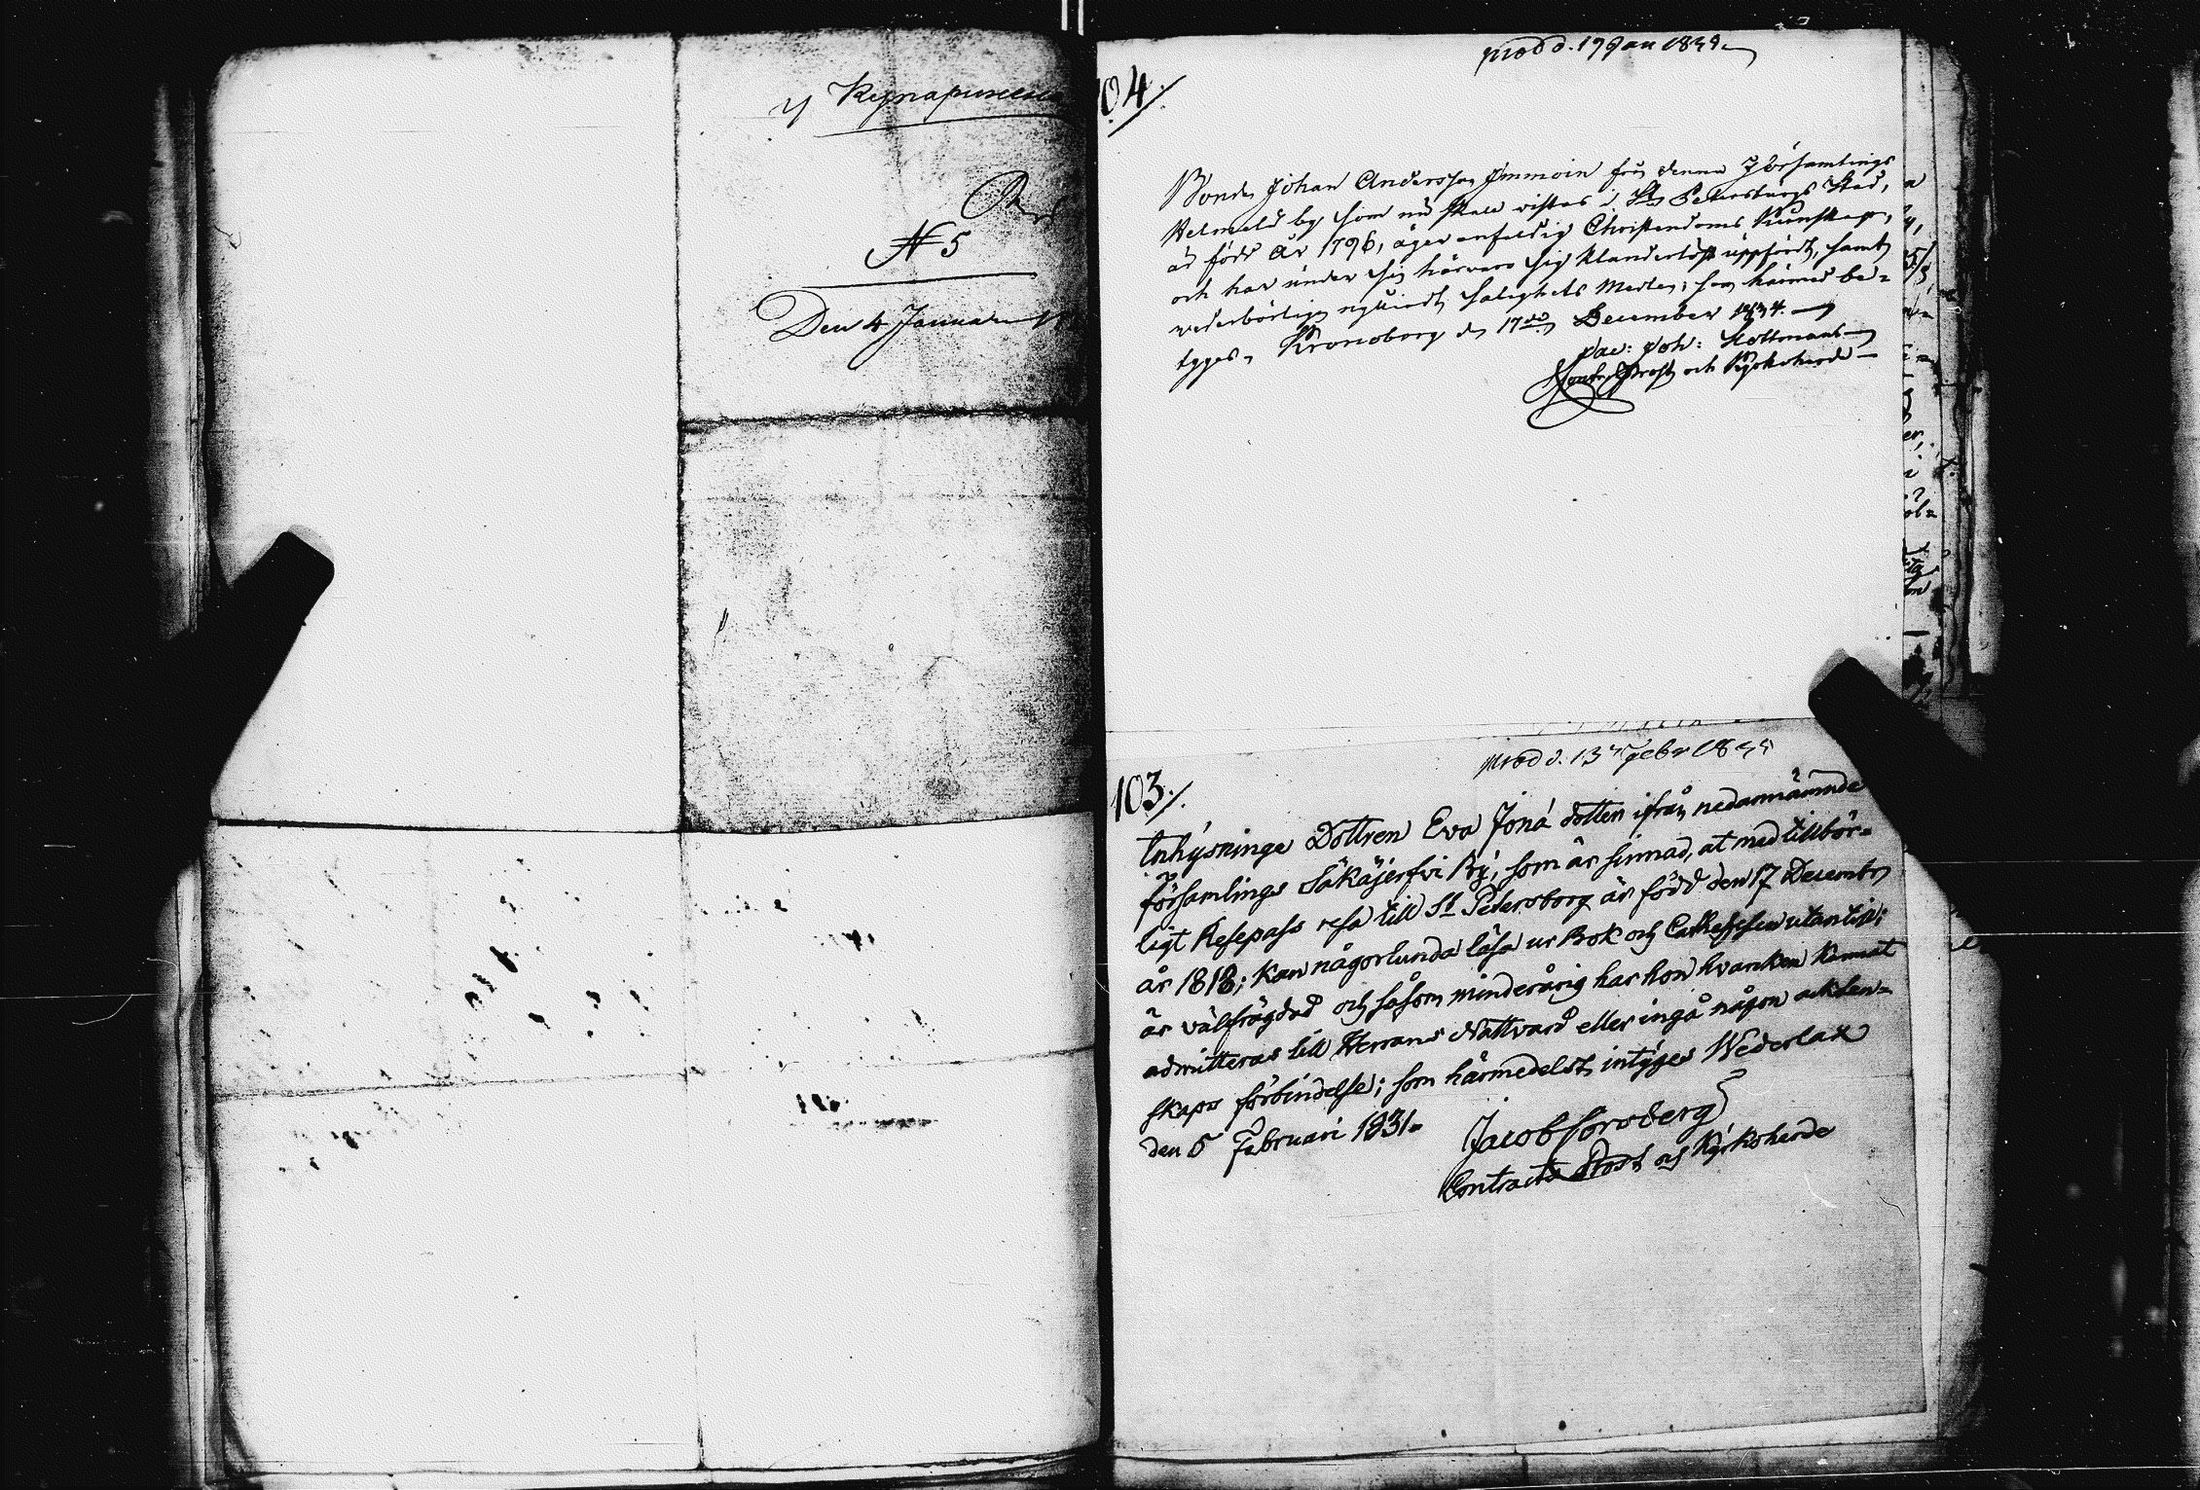 Den 4 Januari
N 5
prod d. 17 Jan 1835
104.
Bonden Johan Andersson Immoin från denna Församlings
by som nu skall vistas i St. Petersburgs Stad,
är född År 1796, äger enfaldig Christendoms Kunskap,
och har under sin härvaro sig klanderlöst uppfördt, samt
vederbörligen njutit Salighets Medlen; som härmed be-
tygas, Kronoborg d. 17de December 1834.
Jac: Joh:
Contr. Prost och Kyrkoherde
prod d. 13 Febr 1835
103.
Inhysninge Dottren Eva Jona dotter ifrån nedannämnde
församlings Säkäjerfvi By, som är sinnad, at med tillbör-
ligt Resepass resa till St Petersborg är född den 17 Decembr
år 1818; kan någorlunda läsa ur Bok och Cathesesen utantill;
är välfrägdad och såsom minderårig har hon hvarken kunnat
admitteras till Herrans Nattvard eller ingå någon äkten-
skaps förbindelse; som härmedelst intyges Wederlax
den 5 Februari 1831.
Jacob
Contracts Prost och Kyrkoherde